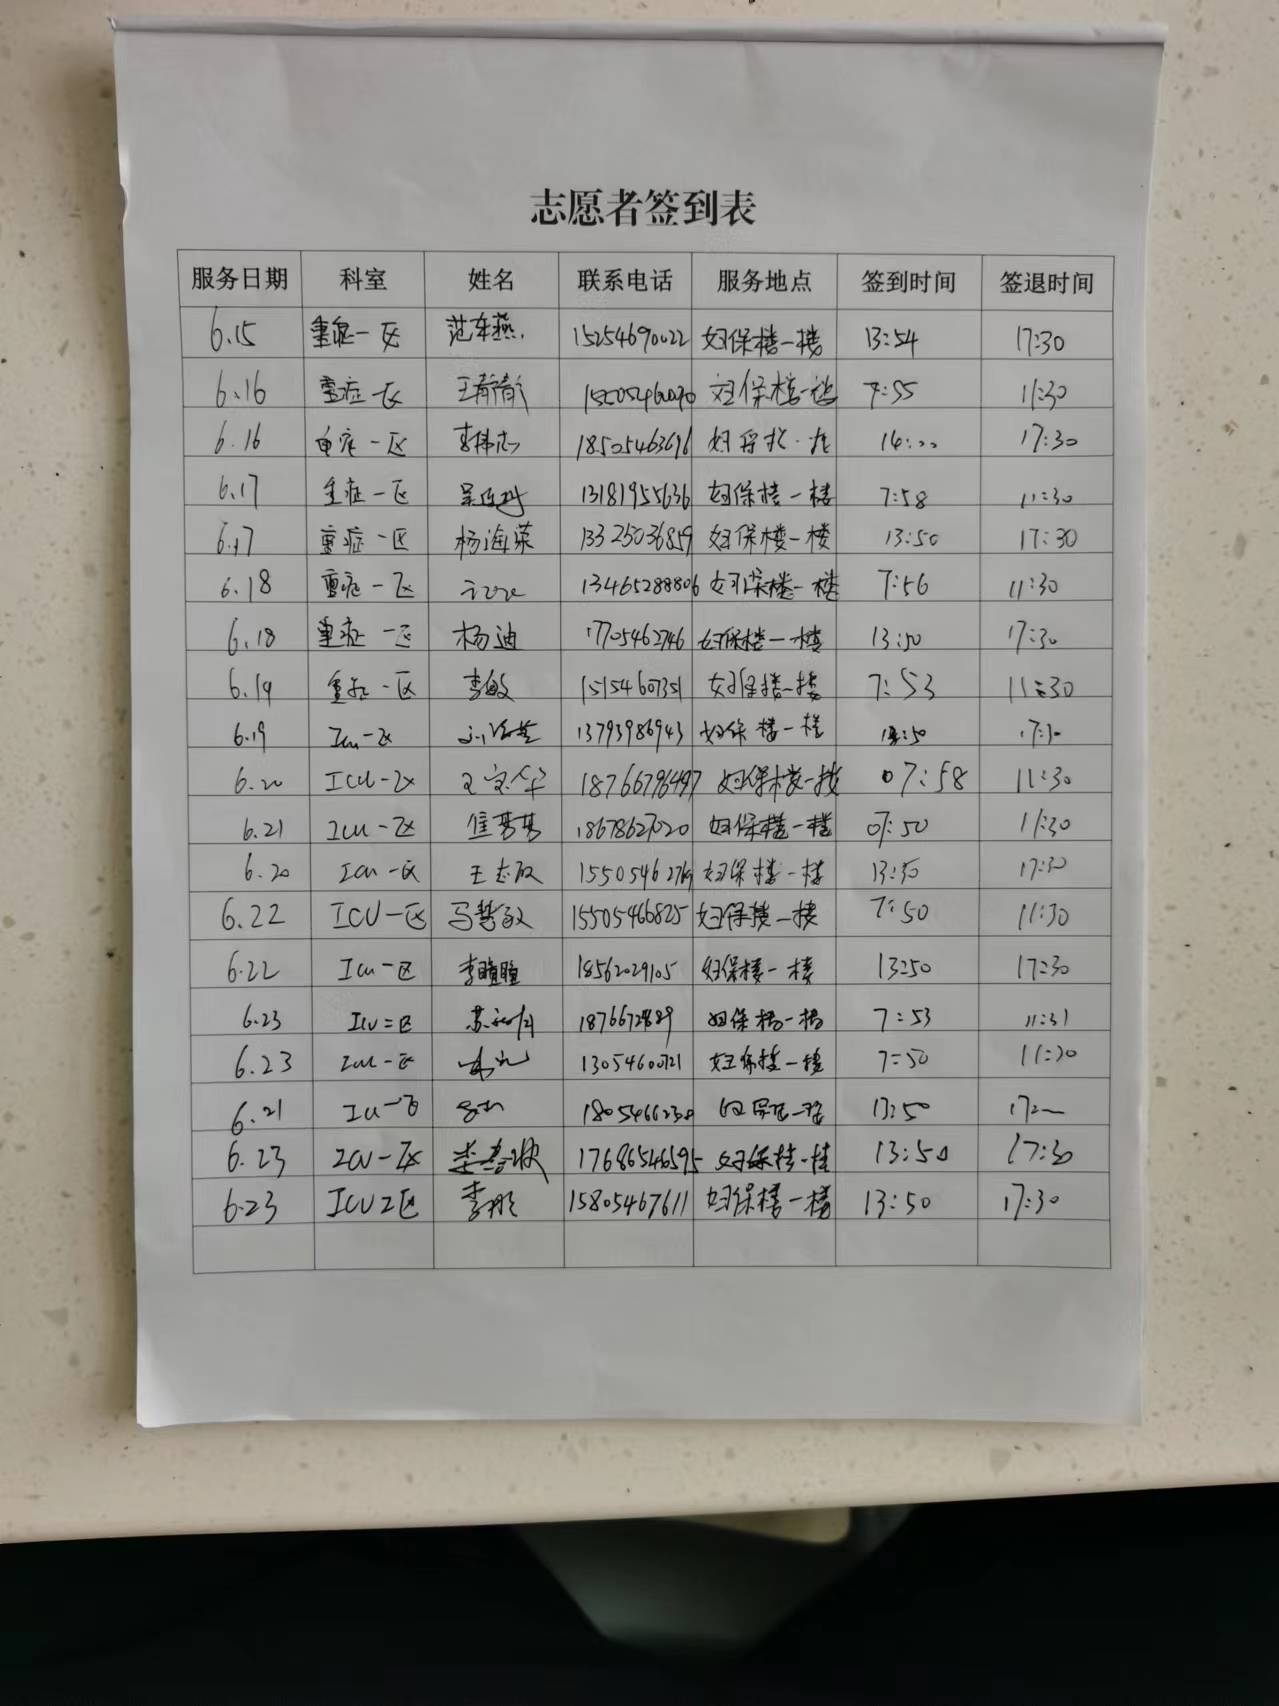 志愿者签到表
服务日期 科室 姓名 联系电话 服务地点 签到时间 签退时间
6.15 重症一区 范冬燕 15254690022 妇保楼一楼 13:54 17:30
6.16 重症一区 王青青 妇保楼一楼 7:55 11:30
6.16 重症一区 李伟志 18505463696 14:00 17:30
6.17 重症一区 13181955636 妇保楼一楼 7:58 11:30
6.17 重症一区 杨海荣 13325036859 妇保楼一楼 13:50 17:30
6.18 重症一区 13465288806 妇保楼一楼 7:56 11:30
6.18 重症一区 杨迪 17705462746 妇保楼一楼 13:50 17:30
6.19 重症一区 李敏 15154607351 妇保楼一楼 7:53 11:30
6.19 Icu一区 13793986943 妇保楼一楼 13:50 17:30
6.20 ICU一区 18766796497 妇保楼一楼 07:58 11:30
6.21 ICU一区 18678627020 妇保楼一楼 07:50 11:30
6.20 Icu一区 王志敏 妇保楼一楼 13:50 17:30
6.22 ICU一区 马哲敏 15505466825 妇保楼一楼 7:50 11:30
6.22 Icu一区 李瞳瞳 18562029105 妇保楼一楼 13:50 17:30
6.23 ICU二区 妇保楼一楼 7:53 11:31
6.23 ICU一区 13054600721 妇保楼一楼 7:50 11:30
6.21 13:50
6.23 ICU一区 17686546595 妇保楼一楼 13:50 17:30
6.23 ICU2区 李彤 15805467611 妇保楼一楼 13:50 17:30